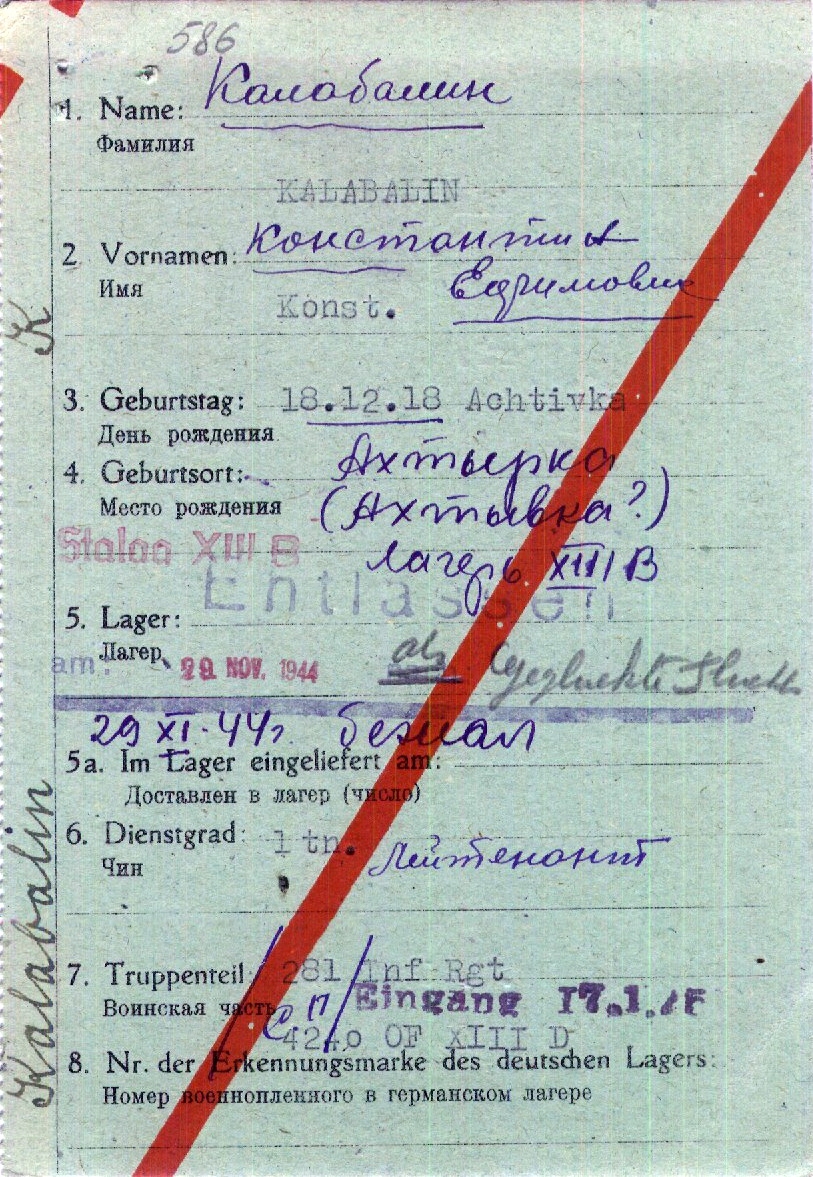 586
1. Name: Калабалин
Фамилия
KALABALIN
2 Vornamen: Константин
Имя
Ефимович
Konst.
K
3. Geburtstag: 18.12.18 Achtivka
День рождения
4. Geburtsort: Ахтырка
Место рождения (Ахтывка?)
Stalag XIII B
лагерь XIII B
Entlassen
5. Lager:
Лагерь
am: 29 NOV. 1944 als Geglückte Flucht
29 XI. 44г. бежал
5a. Im Lager eingeliefert am:
Доставлен в лагер (число)
6. Dienstgrad: ltn. Лейтенант
Чин
Kalabalin
7. Truppenteil: 281 Inf Rgt
Воинская часть
с.п. Eingang 17.1.
4240 OF XIII D
8. Nr. der Erkennungsmarke des deutschen Lagers:
Номер военнопленного в германском лагере